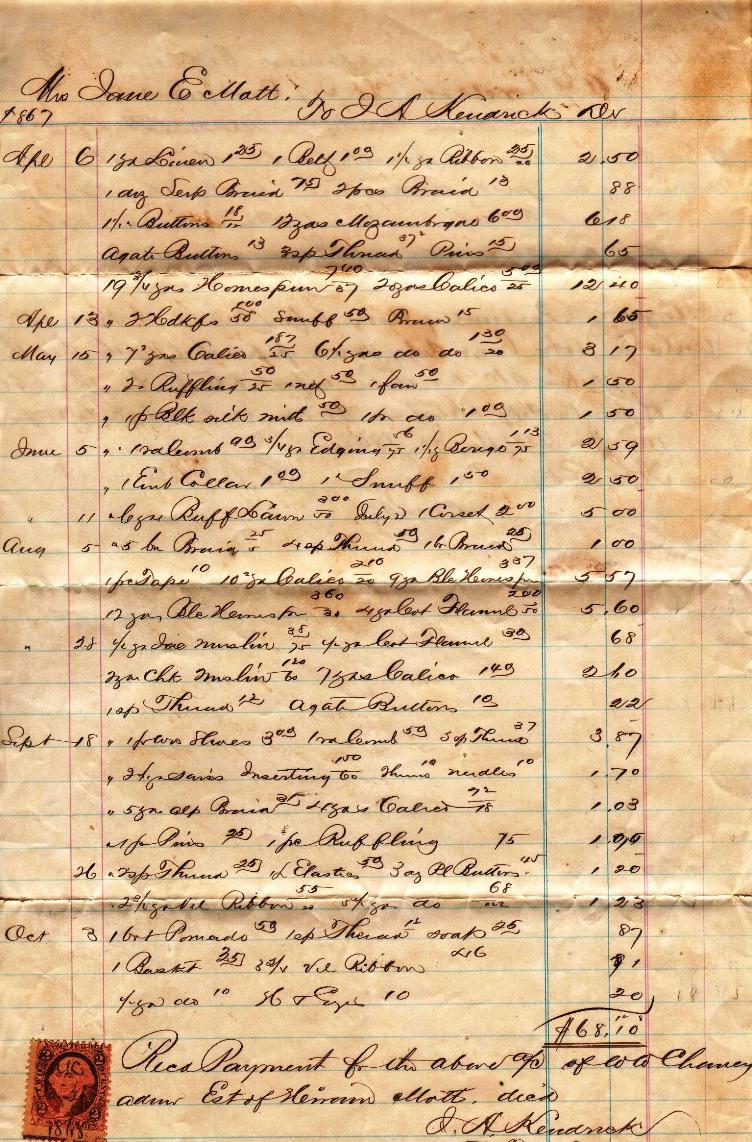 Mrs Jane E Mott.
1867 To J A Kendrick Dr
Apl 6 1 yd Linen 1 25 1 Belt 1 00 1 1/4 yd Ribbon 25/20 2.50
1 doz Serp Braid 75 2 pcs Braid 13 88
1 1/2 " Buttons 18/12 12 yds Mozambique 6 00 6 18
Agate Buttons 13 3 sp Thread 37 2 Pins 15 65
19 3/4 yds Homespun 7 40/37 20 yds Calico 5 00/25 12 40
Apl 13 " 2 Hdkfs 100/50 Snuff 50 Braid 15 1 65
May 15 " 7 2 yds Calico 187/25 6 1/2 yds do do 130/20 3 17
" 2 Ruffling 50/25 1 net 50 1 fan 50 1 50
" 1 p Blk silk mitts 50 1 pr do 1 00 1 50
June 5 " comb 90 3/4 yd Edging 56/75 1 1/2 yd Berege 113/75 2 59
" 1 Emb Collar 1 00 1 " Snuff 1 50 2 50
" 11 " 6 yds Ruff Lawn 300/50 July 2 1 Corset 2 00 5 00
Aug 5 " 5 Braid 25/5 4 sp Thread 50 Braid 25 1 00
1 pc Tape 10 10 2 yd Calico 210/20 9 yd Blc Homespn 337 5 57
12 yds Blc Homespn 360/30 4 yd Cot Flannel 200/50 5.60
" 28 1/2 yd muslin 38/75 1/2 yd Cot Flannel 30 68
2 yds Chk Muslin 120/60 7 yds Calico 1 40 2 60
1 sp Thread 12 Agate Buttons 10 22
Sept 18 " 1 pr Shoes 3 00 comb 50 3 sp Thread 37 3.87
" 2 1/2 yd Swiss Inserting 150/60 Thread 10 needles 10 1.70
" 5 yds alp Braid 31 4 yds Calico 72/18 1.03
1 p Pins 25 1 pc Ruffling 75 1.00
26 " 2 sp Thread 25 Elastic 50 3 oz Pl Buttons 45 1 20
2 3/4 yd Vel Ribbon 55/20 yds do 68 1 23
Oct 3 1 bot Pomade 50 1 sp Thread 12 soap 25 87
1 Basket 25 3 3/4 Vel Ribbon 46 71
yd do 10 H & Eyes 10 20
$68.10
Recd Payment for the above a/c of W W Chaney
admr Est of Hiram Mott. decd
J. A. Kendrick